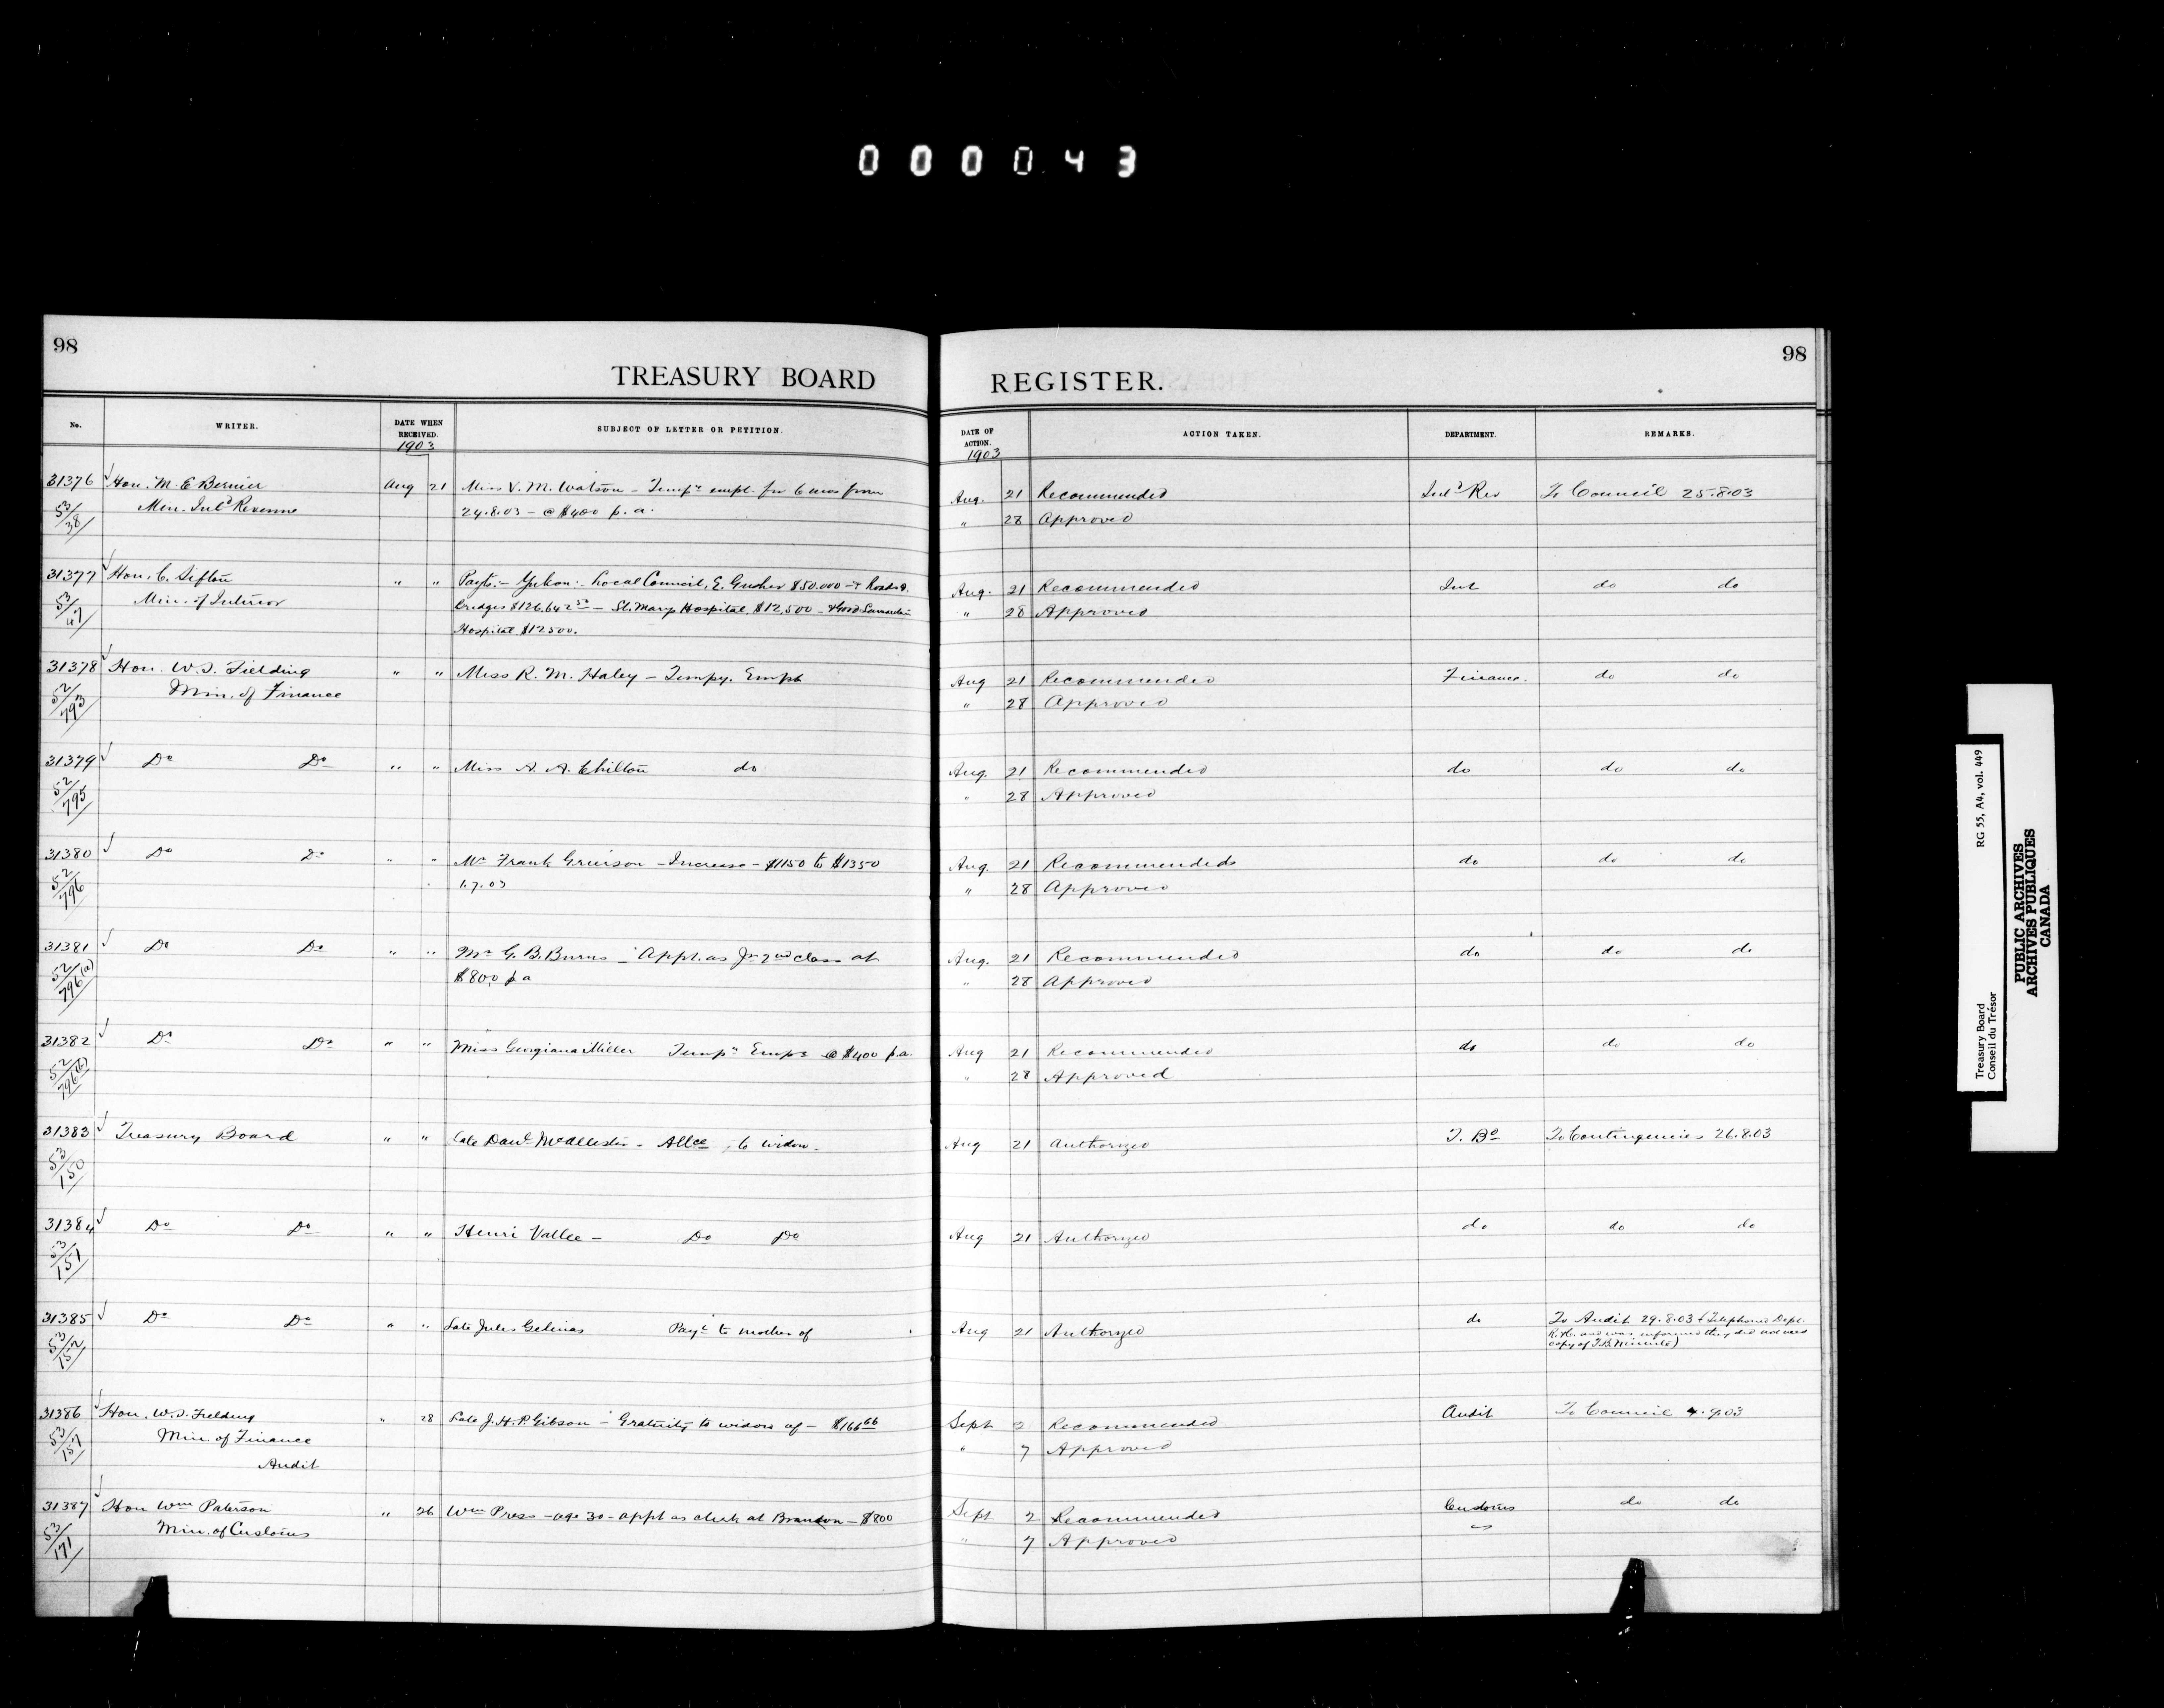 000043
98
TREASURY BOARD
No. WRITER. DATE WHEN RECEIVED. SUBJECT OF LETTER OR PETITION.
1903
31376 Hon. M. E Bernier Aug 21 Miss V. M. Watson - Tempy empl. for 6 mos from
53/38 Min. Inld Revenue 24.8.03 - @ $400 p. a.
31377 Hon. C. Sifton " " Payts. - Yukon: - Local Council, E. $50.000 - Roads &
53/47 Min. of Interior bridges $126.642 - St. Marys Hospital $12,500 - & Good Samaritan
Hospital $12500.
31378 Hon. W. S. Fielding " " Miss R. M. Haley - Tempy. Empt
52/793 Min. of Finance
31379 Do Do " " Miss A. A. Chilton do
52/795
31380 Do Do " " Mr Frank Grierson - Increase - $1150 to $1350
52/796 1.7.03
31381 Do Do " " Mr G. B. Burns - Appt. as Jr 2nd class at
52/796(a) $800 p a
31382 Do Do " " Miss Georgiana Miller Tempy Empt @ $400 p.a.
52/796(b)
31383 Treasury Board " " Late Danl McAllister - Allce to widow -
53/150
31384 Do Do " " Henri Vallee - Do Do
53/151
31385 Do Do " " Late Jules Gelinas Payt to mother of
53/152
31386 Hon. W. S. Fielding " 28 Late J. H. P. Gibson - Gratuity to widow of - $166 66
53/157 Min. of Finance
Audit
31387 Hon Wm Paterson " 26 Wm Press - age 30 - appt as clerk at Brandon - $800
53/171 Min. of Customs
98
REGISTER.
DATE OF ACTION. ACTION TAKEN. DEPARTMENT. REMARKS.
1903
Aug. 21 Recommended Inld Rev To Council 25.8.03
" 28 Approved
Aug. 21 Recommended Int do do
" 28 Approved
Aug 21 Recommended Finance. do do
" 28 Approved
Aug. 21 Recommended do do do
" 28 Approved
Aug. 21 Recommended do do do
" 28 Approved
Aug. 21 Recommended do do do
" 28 Approved
Aug 21 Recommended do do do
" 28 Approved
Aug 21 Authorized T. Bd To Contingencies 26.8.03
Aug 21 Authorized do do do
Aug 21 Authorized do To Audit 29.8.03 (Telephoned Dept.
R. H. and was informed they did not need
copy of T.B. Minute)
Sept 2 Recommended Audit To Council 4.9.03
" 7 Approved
Sept 2 Recommended Customs do do
" 7 Approved
Treasury Board RG 55, A4, vol. 449
Conseil du Trésor
PUBLIC ARCHIVES
ARCHIVES PUBLIQUES
CANADA